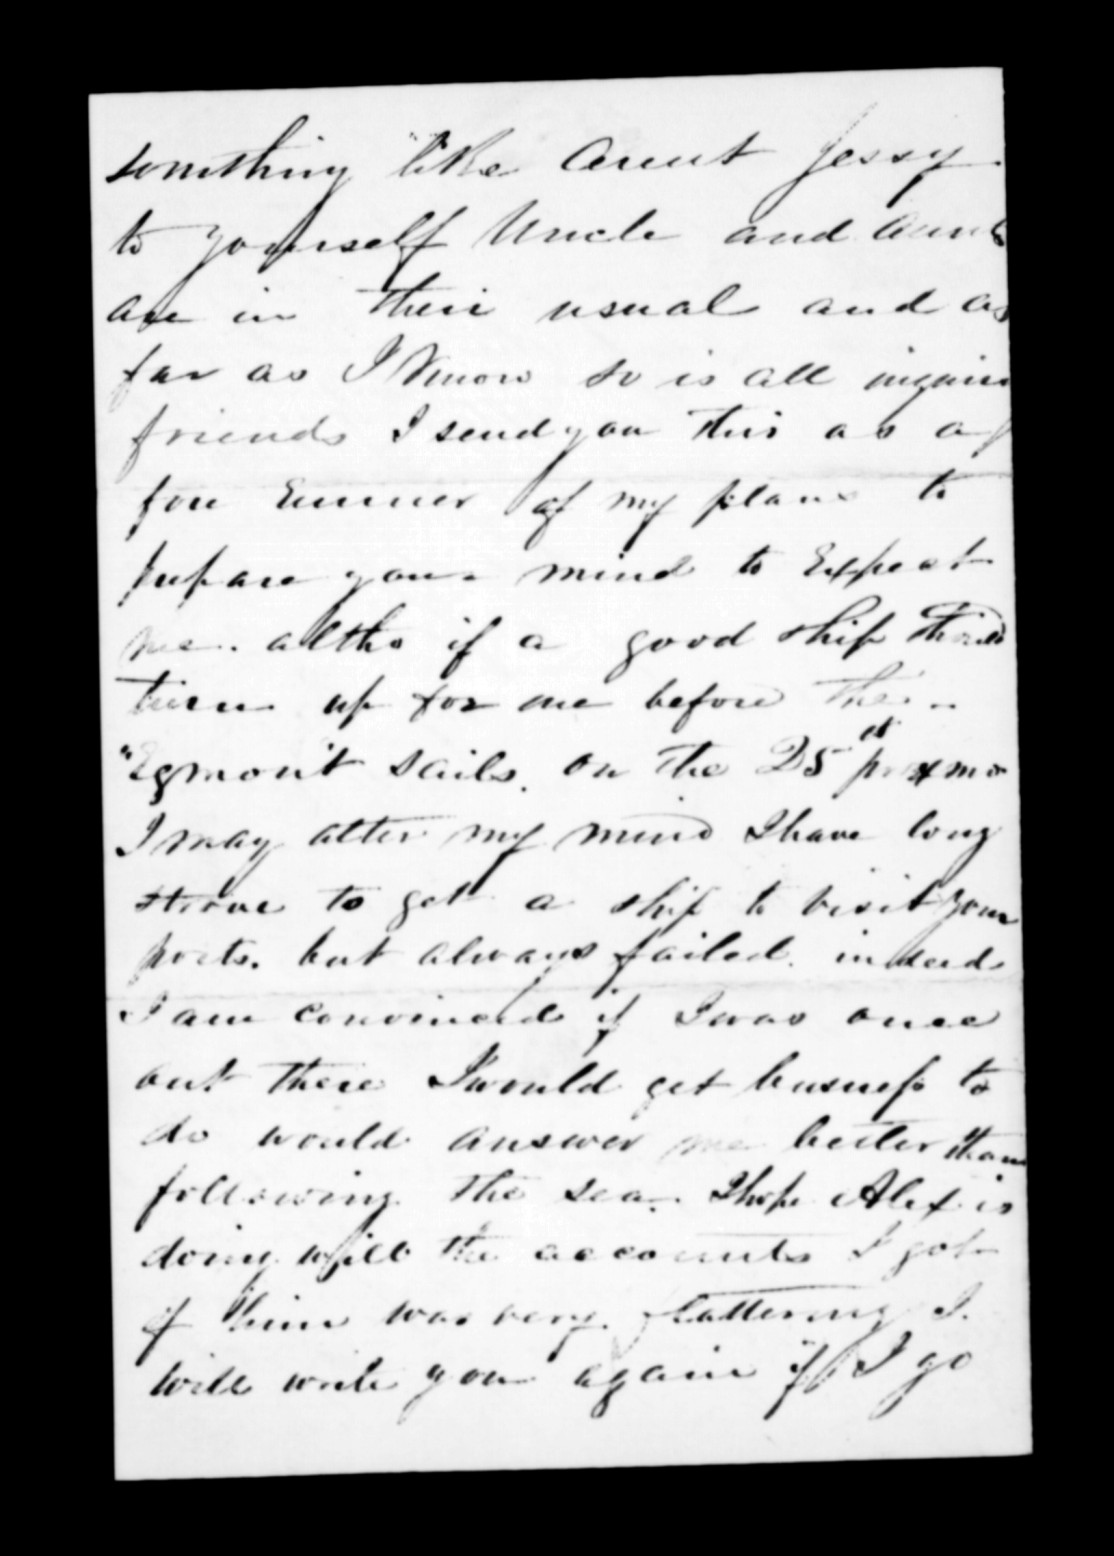 something like Aunt Jessy
to yourself Uncle and Aunts
are in their usual and as
far as I Know so is all
friends I send you this as a
fore runner of my plans to
prepare your mind to Expect
me. altho if a good ship should
turn up for me before the
"Egmont sails. on the 25 proxmo
I may alter my mind I have long
strove to get a ship to visit your
ports. but always failed. indeed
I am convinced if I was once
out there I would get busness to
do would answer me better than
following the sea. I hope Alex is
doing well the accounts I got
of him was very flattering I.
will write you again if I go